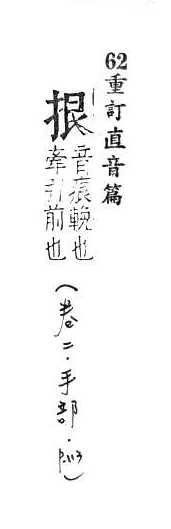 62重訂直音篇
拫
音痕輓也
牽引前也
(卷二·手部·p.113)